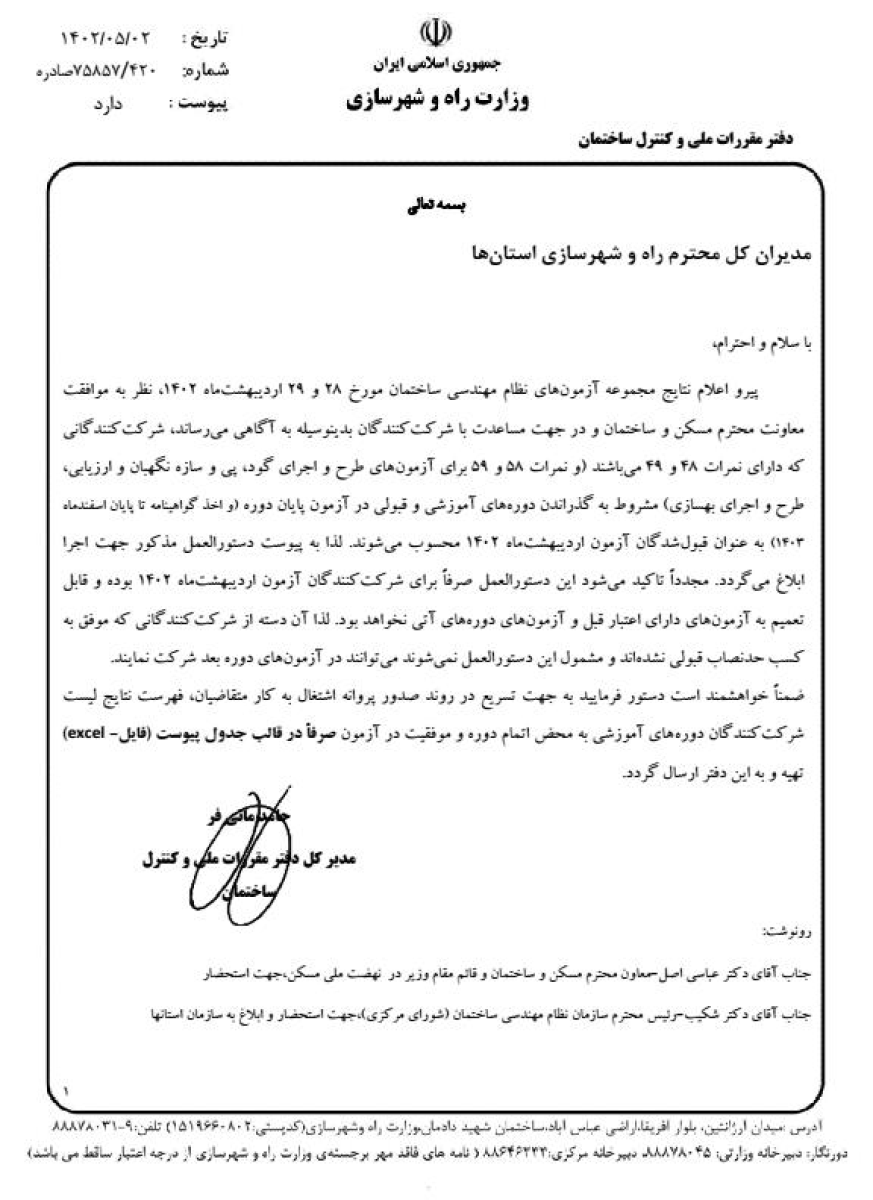 جمهوری اسلامی ایران
وزارت راه و شهرسازی
تاریخ : ۱۴۰۲/۰۵/۰۲
شماره: ۷۵۸۵۷/۴۲۰صادره
پیوست : دارد
دفتر مقررات ملی و کنترل ساختمان
بسمه تعالی
مدیران کل محترم راه و شهرسازی استان‌ها
با سلام و احترام،
پیرو اعلام نتایج مجموعه آزمون‌های نظام مهندسی ساختمان مورخ ۲۸ و ۲۹ اردیبهشت‌ماه ۱۴۰۲، نظر به موافقت
معاونت محترم مسکن و ساختمان و در جهت مساعدت با شرکت‌کنندگان بدینوسیله به آگاهی می‌رساند، شرکت‌کنندگانی
که دارای نمرات ۴۸ و ۴۹ می‌باشند (و نمرات ۵۸ و ۵۹ برای آزمون‌های طرح و اجرای گود، پی و سازه نگهبان و ارزیابی،
طرح و اجرای بهسازی) مشروط به گذراندن دوره‌های آموزشی و قبولی در آزمون پایان دوره (و اخذ گواهینامه تا پایان اسفندماه
۱۴۰۳) به عنوان قبول‌شدگان آزمون اردیبهشت‌ماه ۱۴۰۲ محسوب می‌شوند. لذا به پیوست دستورالعمل مذکور جهت اجرا
ابلاغ می‌گردد. مجدداً تاکید می‌شود این دستورالعمل صرفاً برای شرکت‌کنندگان آزمون اردیبهشت‌ماه ۱۴۰۲ بوده و قابل
تعمیم به آزمون‌های دارای اعتبار قبل و آزمون‌های دوره‌های آتی نخواهد بود. لذا آن دسته از شرکت‌کنندگانی که موفق به
کسب حدنصاب قبولی نشده‌اند و مشمول این دستورالعمل نمی‌شوند می‌توانند در آزمون‌های دوره بعد شرکت نمایند.
ضمناً خواهشمند است دستور فرمایید به جهت تسریع در روند صدور پروانه اشتغال به کار متقاضیان، فهرست نتایج لیست
شرکت‌کنندگان دوره‌های آموزشی به محض اتمام دوره و موفقیت در آزمون صرفاً در قالب جدول پیوست (فایل- excel)
تهیه و به این دفتر ارسال گردد.
حامد مانی فر
مدیر کل دفتر مقررات ملی و کنترل
ساختمان
رونوشت:
جناب آقای دکتر عباسی اصل-معاون محترم مسکن و ساختمان و قائم مقام وزیر در نهضت ملی مسکن،جهت استحضار
جناب آقای دکتر شکیب-رئیس محترم سازمان نظام مهندسی ساختمان (شورای مرکزی)،جهت استحضار و ابلاغ به سازمان استانها
۱
آدرس :میدان آرژانتین، بلوار افریقا،اراضی عباس آباد،ساختمان شهید دادمان،وزارت راه وشهرسازی(کدپستی:۱۵۱۹۶۶۰۸۰۲) تلفن:۹-۸۸۸۷۸۰۳۱
دورنگار: دبیرخانه وزارتی: ۸۸۸۷۸۰۴۵، دبیرخانه مرکزی:۸۸۶۴۶۲۳۳ ( نامه های فاقد مهر برجسته‌ی وزارت راه و شهرسازی از درجه اعتبار ساقط می باشد)